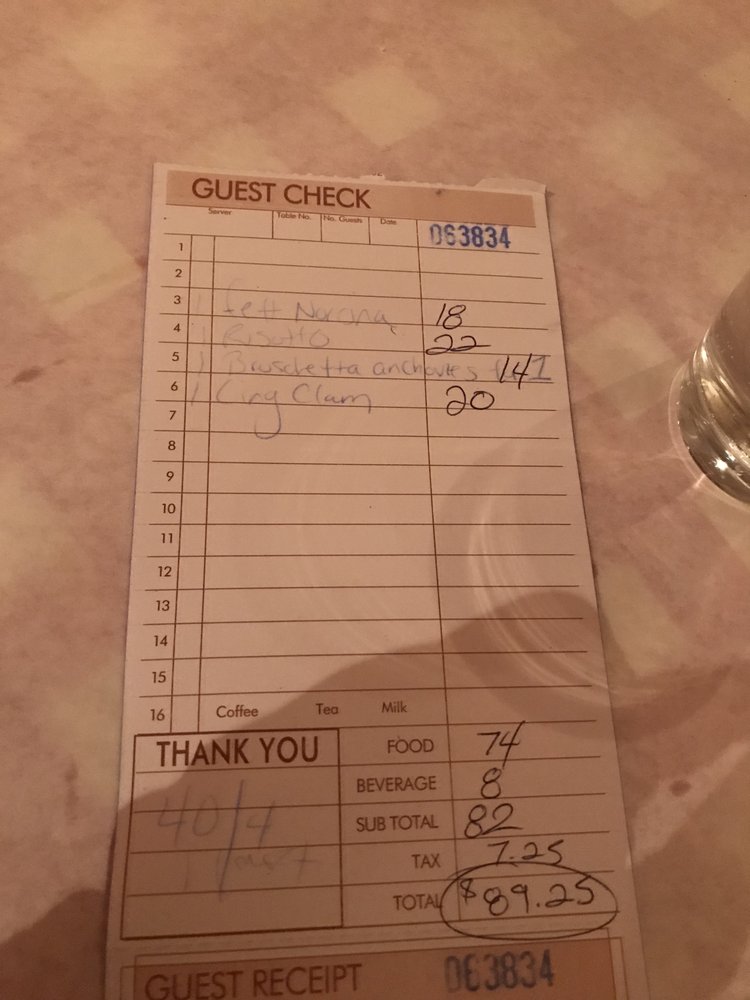 GUEST CHECK
Server Table No. No. Guests Date
063834
1
2
3 1 Fett Norcina 18
4 1 Risotto 22
5 1 Bruschetta anchovies 14
6 1 Ling Clam 20
7
8
9
10
11
12
13
14
15
16 Coffee Tea Milk
THANK YOU
40/4
FOOD 74
BEVERAGE 8
SUB TOTAL 82
TAX 7.25
TOTAL $89.25
GUEST RECEIPT 063834